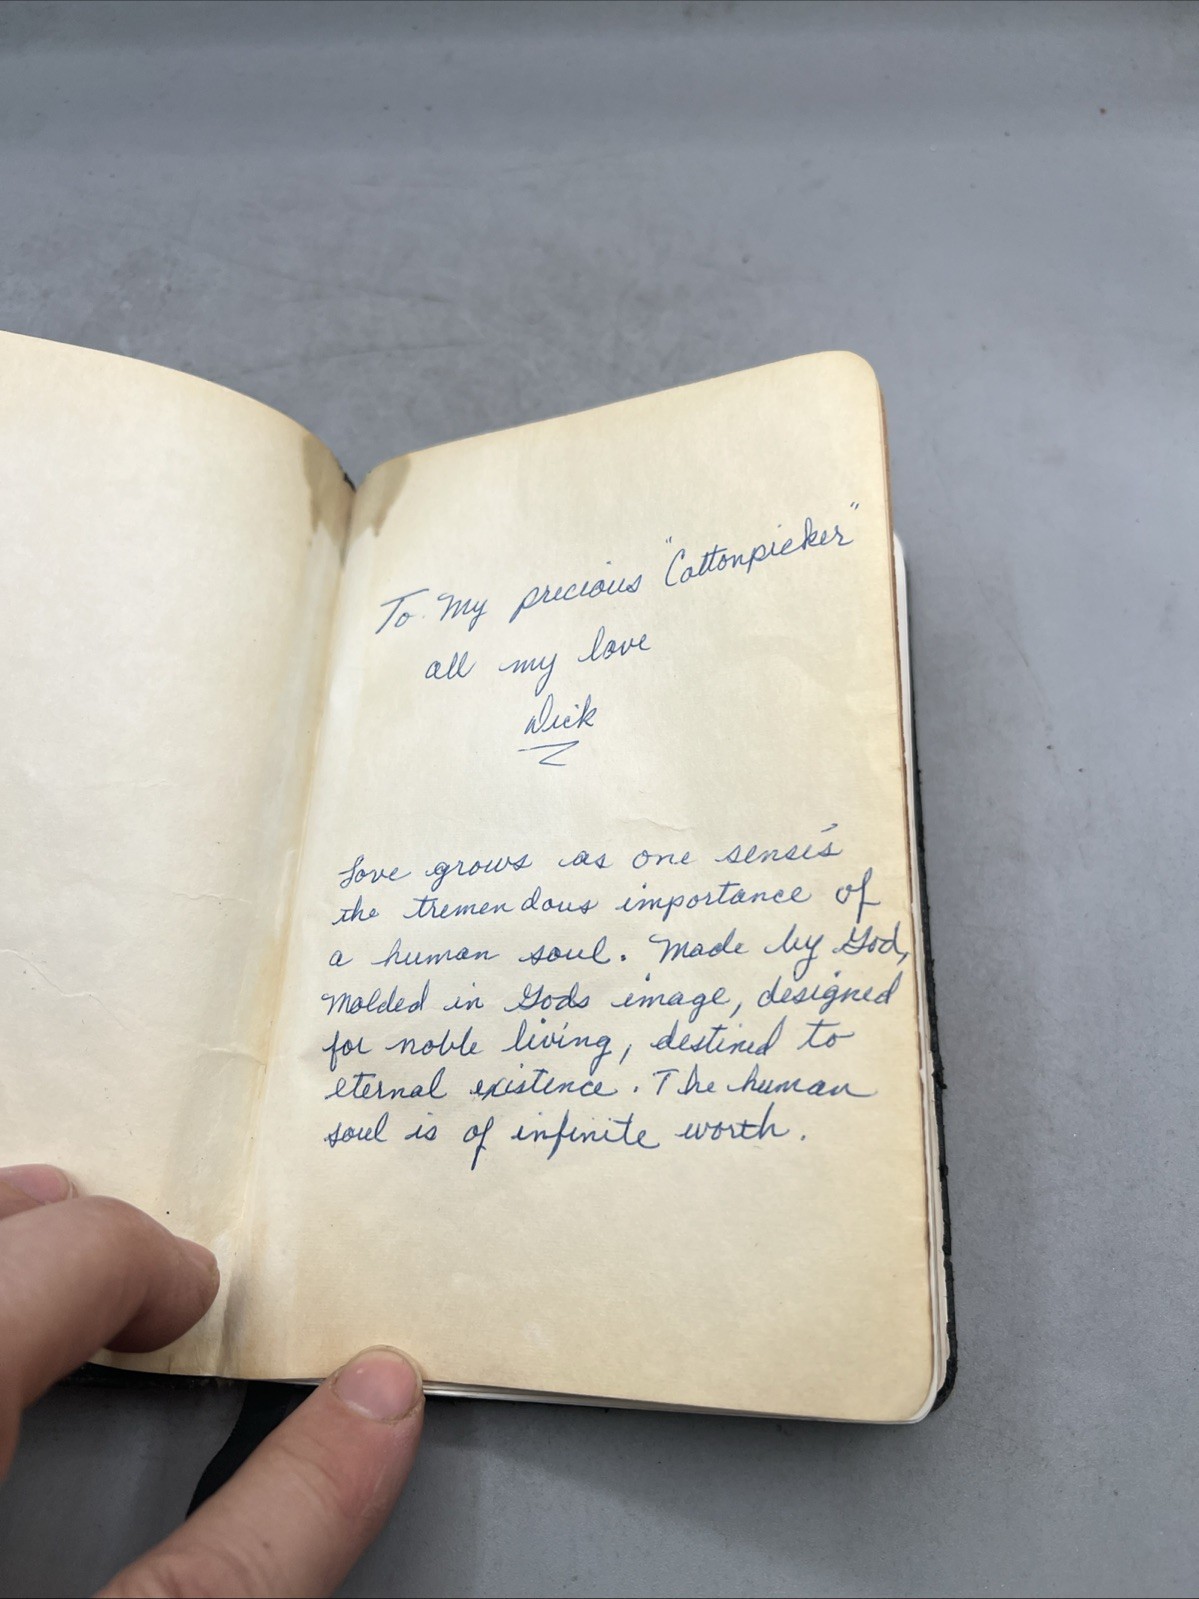 To My precious "Cottonpicker"
all my love
Dick
Love grows as one sense's
the tremendous importance of
a human soul. Made by God,
Molded in Gods image, designed
for noble living, destined to
eternal existence. The human
soul is of infinite worth.